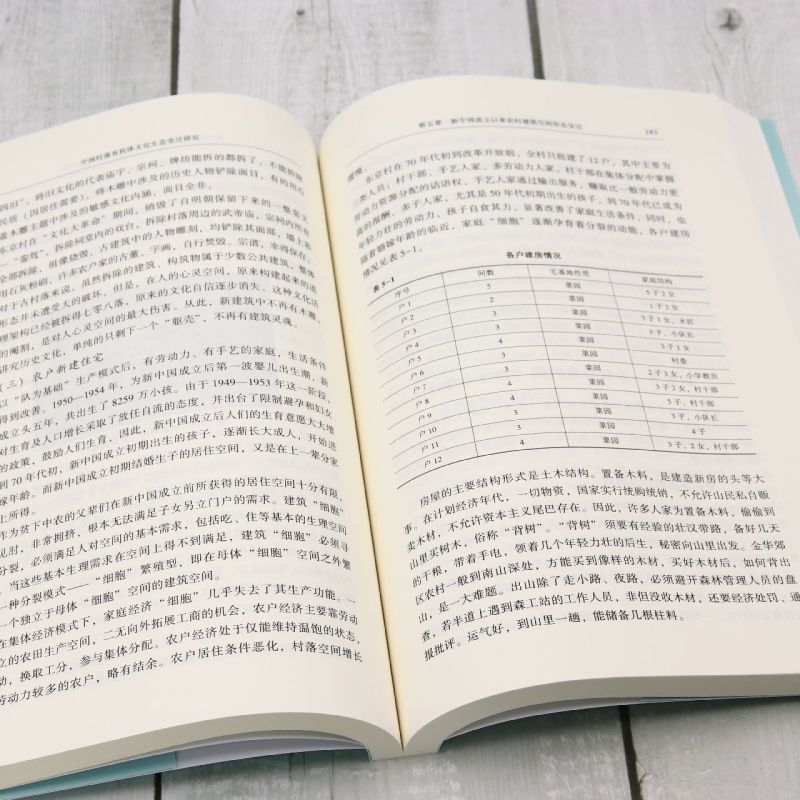 中国村落有机体文化生态变迁研究
四旧”，将旧文化的代表庙宇、宗祠、牌坊能拆的都拆了，不能拆除
民居（因居住需要），将木雕中涉及的历史人物铲除面目，有的用石
盖木雕主题中涉及的敏感文化内涵，面目全非。
东京村在“文化大革命”期间，销毁了自明朝保留下来的一整套文
“銮驾”，拆除祠堂内的戏台，拆除村落周边的武帝庙，宗祠内所有
全部拆除，祖像烧毁，古建筑中的人物雕刻，均铲除其面部，墙上
用石灰粉刷，许多农户家的古董、字画，自行焚毁。宗谱，幸得保存。
对于古村落来说，虽然拆除的建筑、构筑物属于少数公共建筑，整体
形态并未遭受大的破坏，但是，在人的心灵空间，原来构建起来的道
理架构已经被拆得七零八落，原来的文化自信逐步消失。这种文化活
的阉割，是对人心灵空间的最大伤害。从此，新建筑中不再有木雕，
研究历史文化，单纯的只剩下一个“躯壳”，不再有建筑灵魂。
（三）农户新建住宅
以“队为基础”生产模式后，有劳动力、有手艺的家庭，生活条件
得到改善。1950—1954年，为新中国成立后第一波婴儿出生潮，新
成立头五年，共出生了8259万小孩。由于1949—1953年这一阶段，
对生育及人口增长采取了放任自流的态度，并出台了限制避孕和妇女
的政策，鼓励人们生育，因此，新中国成立后人们的生育意愿大大增
到70年代初，新中国成立初期出生的孩子，逐渐长大成人，开始进
嫁年龄。而新中国成立初期结婚生子的居住空间，又是在上一辈分家
上所得。
作为贫下中农的父辈们在新中国成立前所获得的居住空间十分有限，
见肘，非常拥挤，根本无法满足子女另立门户的需求。建筑“细胞”
分裂，必须满足人对空间的基本需求，包括吃、住等基本的生理空间
。当这些基本生理需求在空间上得不到满足，建筑“细胞”必须寻
一种分裂模式——“细胞”繁殖型，即在母体“细胞”空间之外繁
一个独立于母体“细胞”空间的建筑空间。
在集体经济模式下，家庭经济“细胞”几乎失去了其生产功能。一
立的农田生产空间，二无向外拓展工商的机会，农户经济主要靠劳动
动，换取工分，参与集体分配。农户经济处于仅能维持温饱的状态，
劳动力较多的农户，略有结余。农户居住条件恶化，村落空间增长
第五章 新中国成立以来农村建筑空间形态变迁 183
缓慢。东京村在70年代初到改革开放前，全村只批建了12户，其中主要为
三类人员：村干部、手艺人家、多劳动力人家，村干部在集体分配中掌握
劳动力资源分配的话语权，手艺人家通过输出服务，赚取比一般劳动力更
高的报酬，多子人家，尤其是50年代初期出生的孩子，到70年代已成为
年轻力壮的劳动力，孩子自食其力，显著改善了家庭生活条件，同时，也
随着婚嫁年龄的临近，家庭“细胞”逐渐孕育着分裂的动能，各户建房
情况见表5-1。
表5-1 各户建房情况
序号 间数 宅基地性质 家庭结构
户1 5 菜园 5子2女
户2 2 菜园 1子2女
户3 3 菜园 3子1女，木匠
户4 3 菜园 3子，小队长
户5 4 菜园 3子1女
户6 3 菜园 村委
户7 3 菜园 2子3女，小学教员
户8 4 菜园 3子2女，村干部
户9 4 菜园 5子，村干部
户10 3 菜园 3子，小队长
户11 3 菜园 4子
户12 4 菜园 3子，2女，村干部
房屋的主要结构形式是土木结构。置备木料，是建造新房的头等大
事。在计划经济年代，一切物资，国家实行统购统销，不允许山民私自贩
卖木材，不允许资本主义尾巴存在。因此，许多人家为置备木料，偷偷到
山里买树木，俗称“背树”。“背树”须要有经验的壮汉带路，备好几天
的干粮，带着手电，领着几个年轻力壮的后生，秘密向山里出发。金华郊
区农村一般到南山深处，方能买到像样的木材，买好木材后，如何背出
山，是一大难题。出山除了走小路、夜路，必须避开森林管理人员的盘
查，若半道上遇到森工站的工作人员，非但没收木材，还要经济处罚、通
报批评。运气好，到山里一趟，能储备几根柱料。